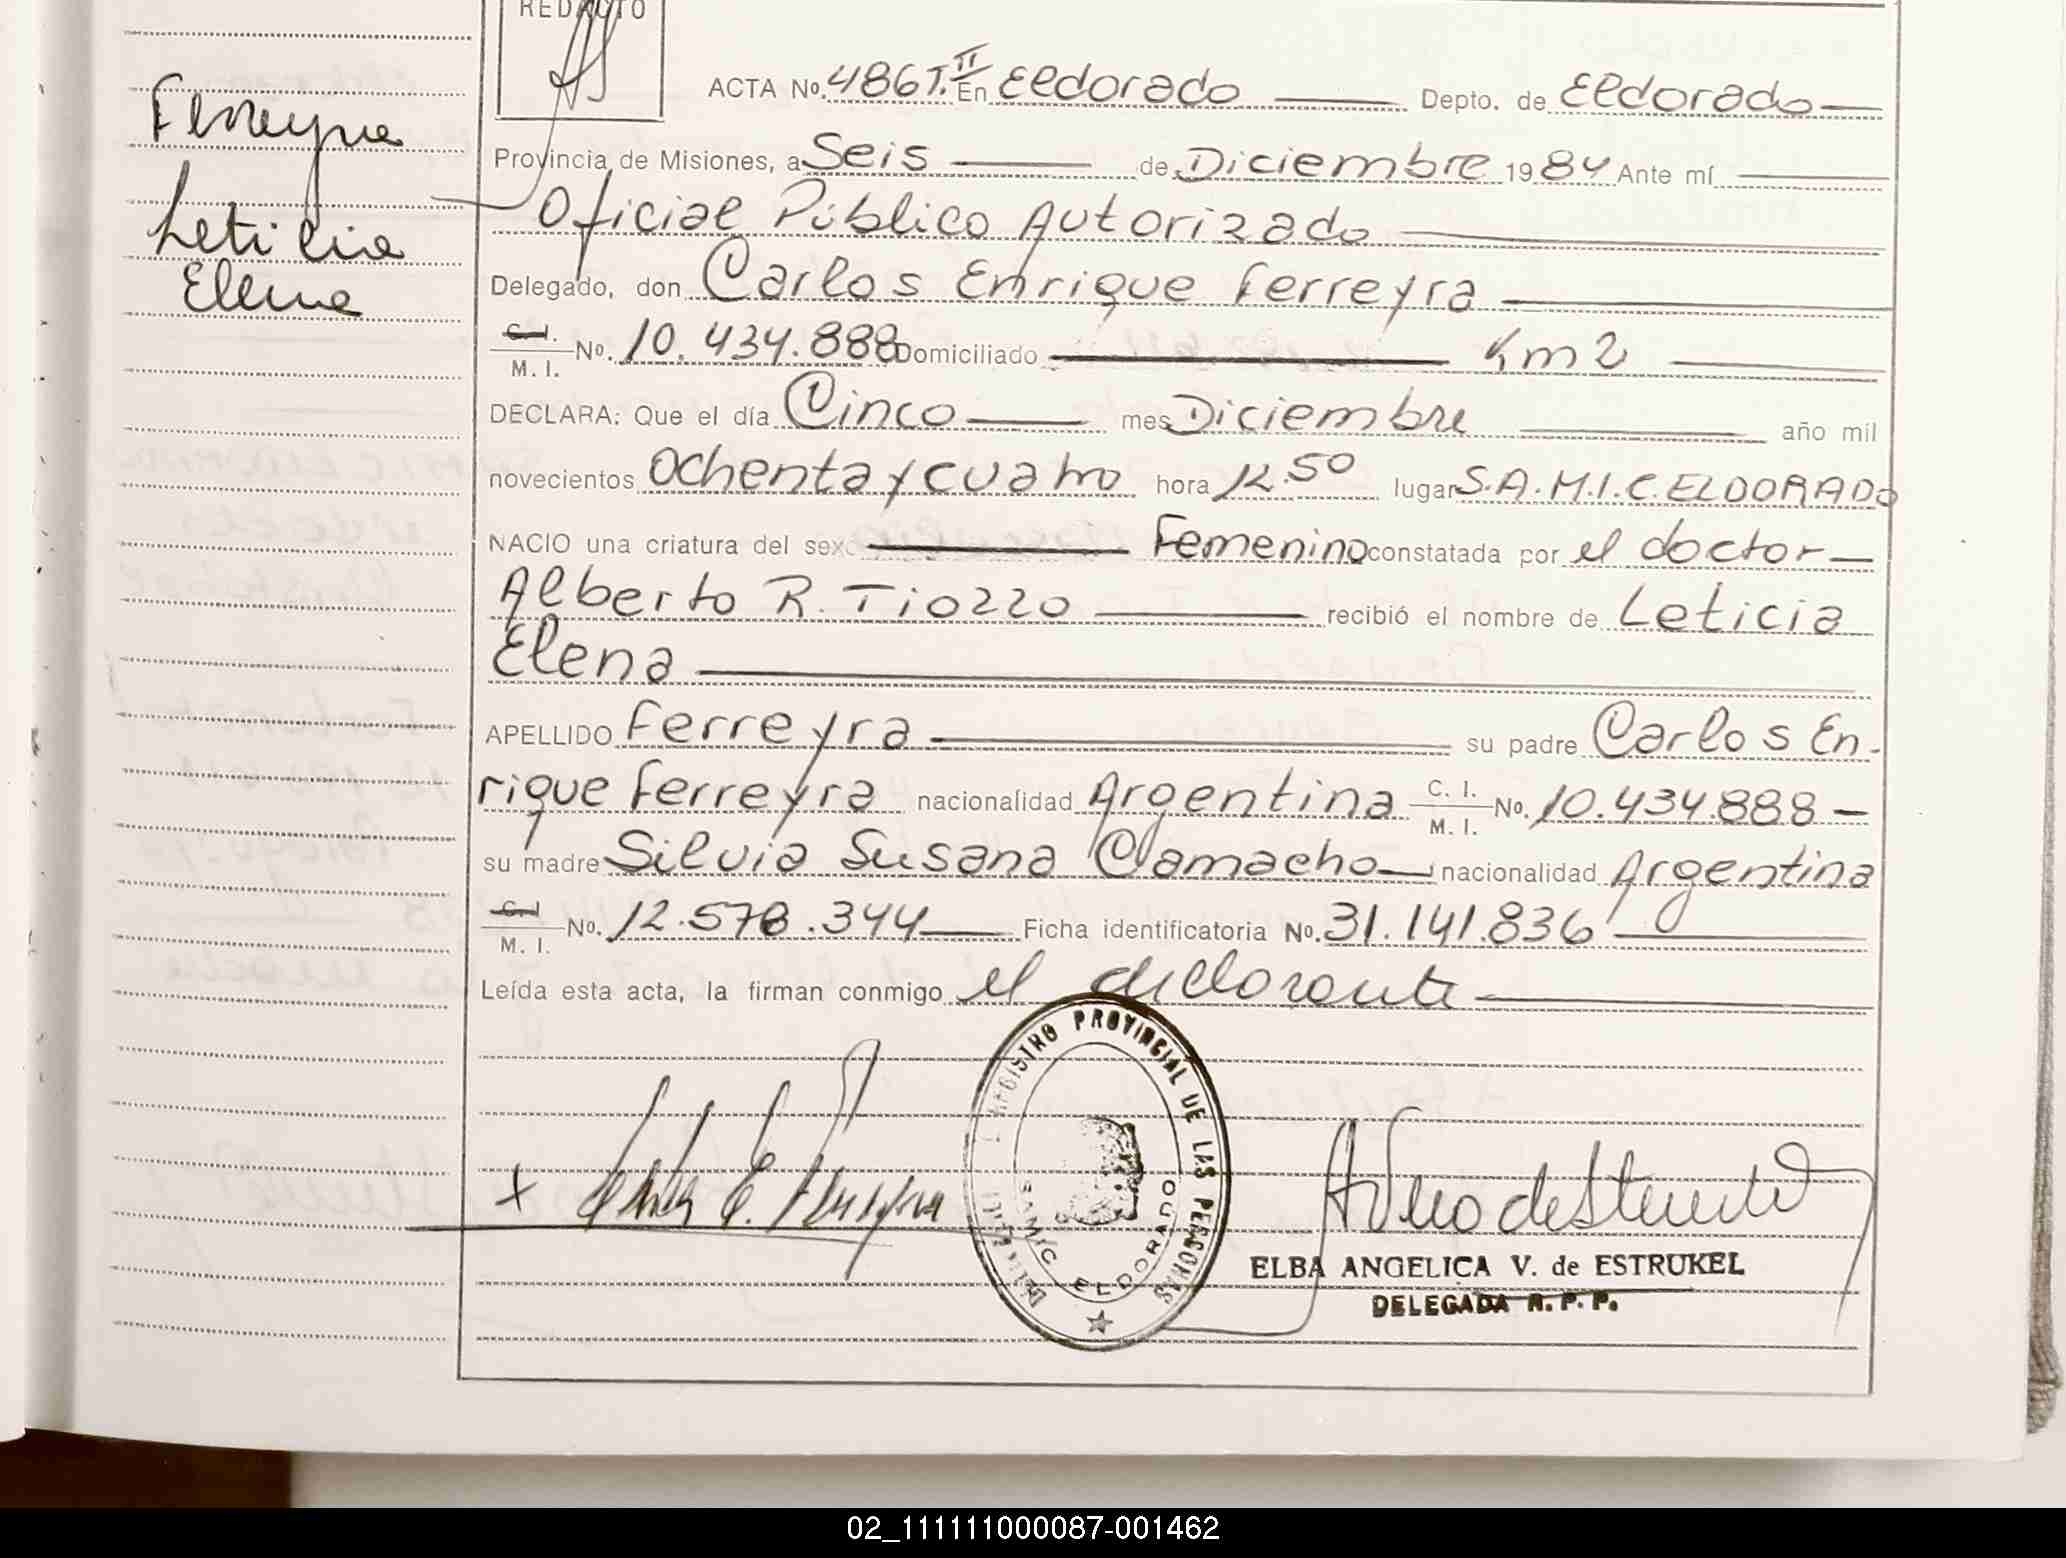 REDACTO
ACTA No. 486 T. II En Eldorado Depto. de Eldorado
Provincia de Misiones, a Seis de Diciembre 1984 Ante mí
Oficial Público Autorizado
Delegado, don Carlos Enrique Ferreyra
C. I. M. I. No. 10.434.888 Domiciliado Km 2
DECLARA: Que el día Cinco mes Diciembre año mil
novecientos Ochenta y cuatro hora 12.50 lugar S.A.M.I.C. ELDORADO
NACIO una criatura del sexo Femenino constatada por el doctor
Alberto R. Tiozzo recibió el nombre de Leticia
Elena
APELLIDO Ferreyra su padre Carlos En-
rique Ferreyra nacionalidad Argentina C. I. M. I. No. 10.434.888
su madre Silvia Susana Camacho nacionalidad Argentina
C. I. M. I. No. 12.578.344 Ficha identificatoria No. 31.141.836
Leída esta acta, la firman conmigo el declarante
Ferreyra
Leticia
Elena
x Carlos E. Ferreyra
REGISTRO PROVINCIAL DE LAS PERSONAS
SAMIC ELDORADO
ELBA ANGELICA V. de ESTRUKEL
DELEGADA R. P. P.
02_111111000087-001462